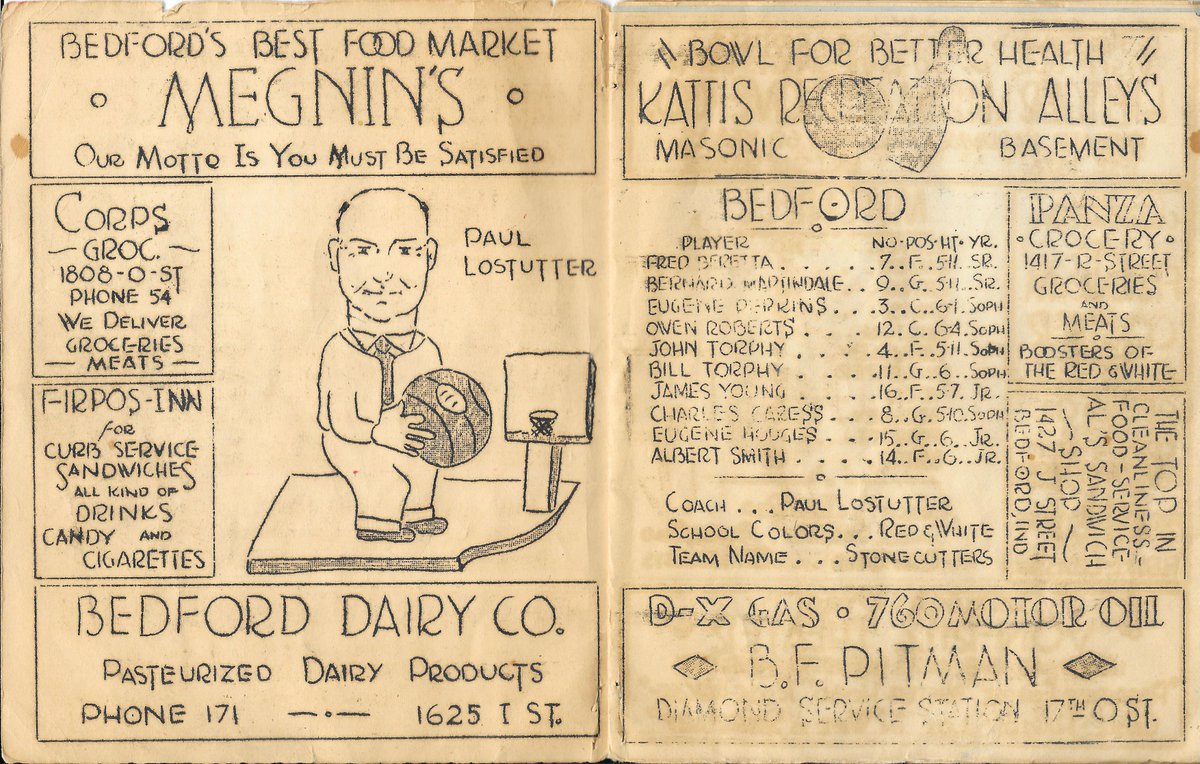 BEDFORD'S BEST FOOD MARKET
MEGNIN'S
OUR MOTTO IS YOU MUST BE SATISFIED
CORPS
GROC.
1808-O-ST
PHONE 54
WE DELIVER
GROCERIES
MEATS
PAUL
LOSTUTTER
FIRPOS-INN
FOR
CURB SERVICE
SANDWICHES
ALL KIND OF
DRINKS
CANDY AND
CIGARETTES
BEDFORD DAIRY CO.
PASTEURIZED DAIRY PRODUCTS
PHONE 171 — 1625 I ST.
BOWL FOR BETTER HEALTH
KATTIS RECREATION ALLEYS
MASONIC BASEMENT
BEDFORD
PLAYER NO·POS·HT·YR.
FRED BERETTA . . . . . . 7..F..5-11..SR.
BERNARD MARTINDALE.. 9..G..5-11..SR.
EUGENE PERKINS . . . 3..C..6-1..SOPH
OWEN ROBERTS . . . . 12..C..6-4..SOPH
JOHN TORPHY . . . . 4..F..5-11..SOPH
BILL TORPHY . . . . 11..G..6..SOPH
JAMES YOUNG . . . . 16..F..5-7..JR.
CHARLES CARESS . . . 8..G..5-10..SOPH
EUGENE HODGES . . . 15..G..6..JR.
ALBERT SMITH . . . . 14..F..6..JR.
COACH . . . PAUL LOSTUTTER
SCHOOL COLORS... RED & WHITE
TEAM NAME . . . STONECUTTERS
PANZA
·GROCERY·
1417-R-STREET
GROCERIES
AND
MEATS
BOOSTERS OF
THE RED & WHITE
THE TOP IN
CLEANLINESS-
FOOD-SERVICE
AL'S SANDWICH
SHOP
1427 J STREET
BEDFORD, IND
D-X GAS · 760 MOTOR OIL
B.F. PITMAN
DIAMOND SERVICE STATION 17TH O ST.